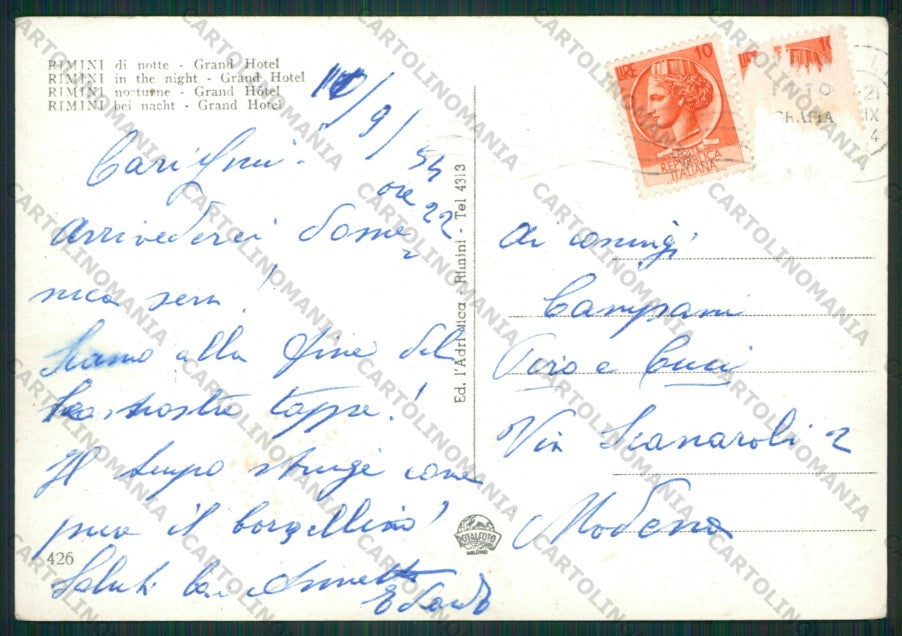 RIMINI di notte - Grand Hotel
RIMINI in the night - Grand Hotel
RIMINI nocturne - Grand Hôtel
RIMINI bei nacht - Grand Hotel
10/9/54
ore 22
Carissimi
Arrivederci dome
nica sera!
Siamo alla fine del
la nostra tappa!
Il tempo stringe come
pure il borsellino!
Saluti cari
426
Ed. l'Adriatica - Rimini - Tel 4313
LIRE 10
REPVBBLICA
ITALIANA
GRAFIA
Ai coniugi
Campani
Toro e Cuci
Via Scanaroli 2
Modena
TOTALFOTO
MILANO
CARTOLINOMANIA